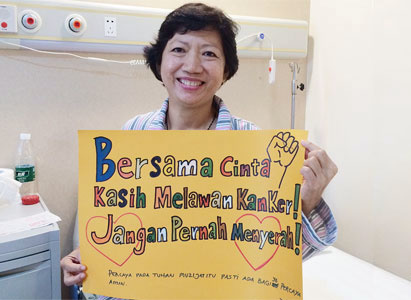 Bersama Cinta
Kasih Melawan Kanker!
Jangan Pernah Menyerah!
PERCAYA PADA TUHAN MUZIJAT ITU PASTI ADA BAGI YG PERCAYA
AMIN